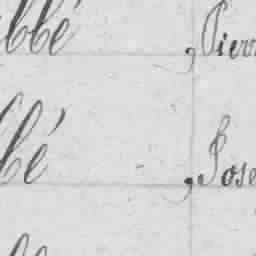 bbé, Pierr
bé, Jose